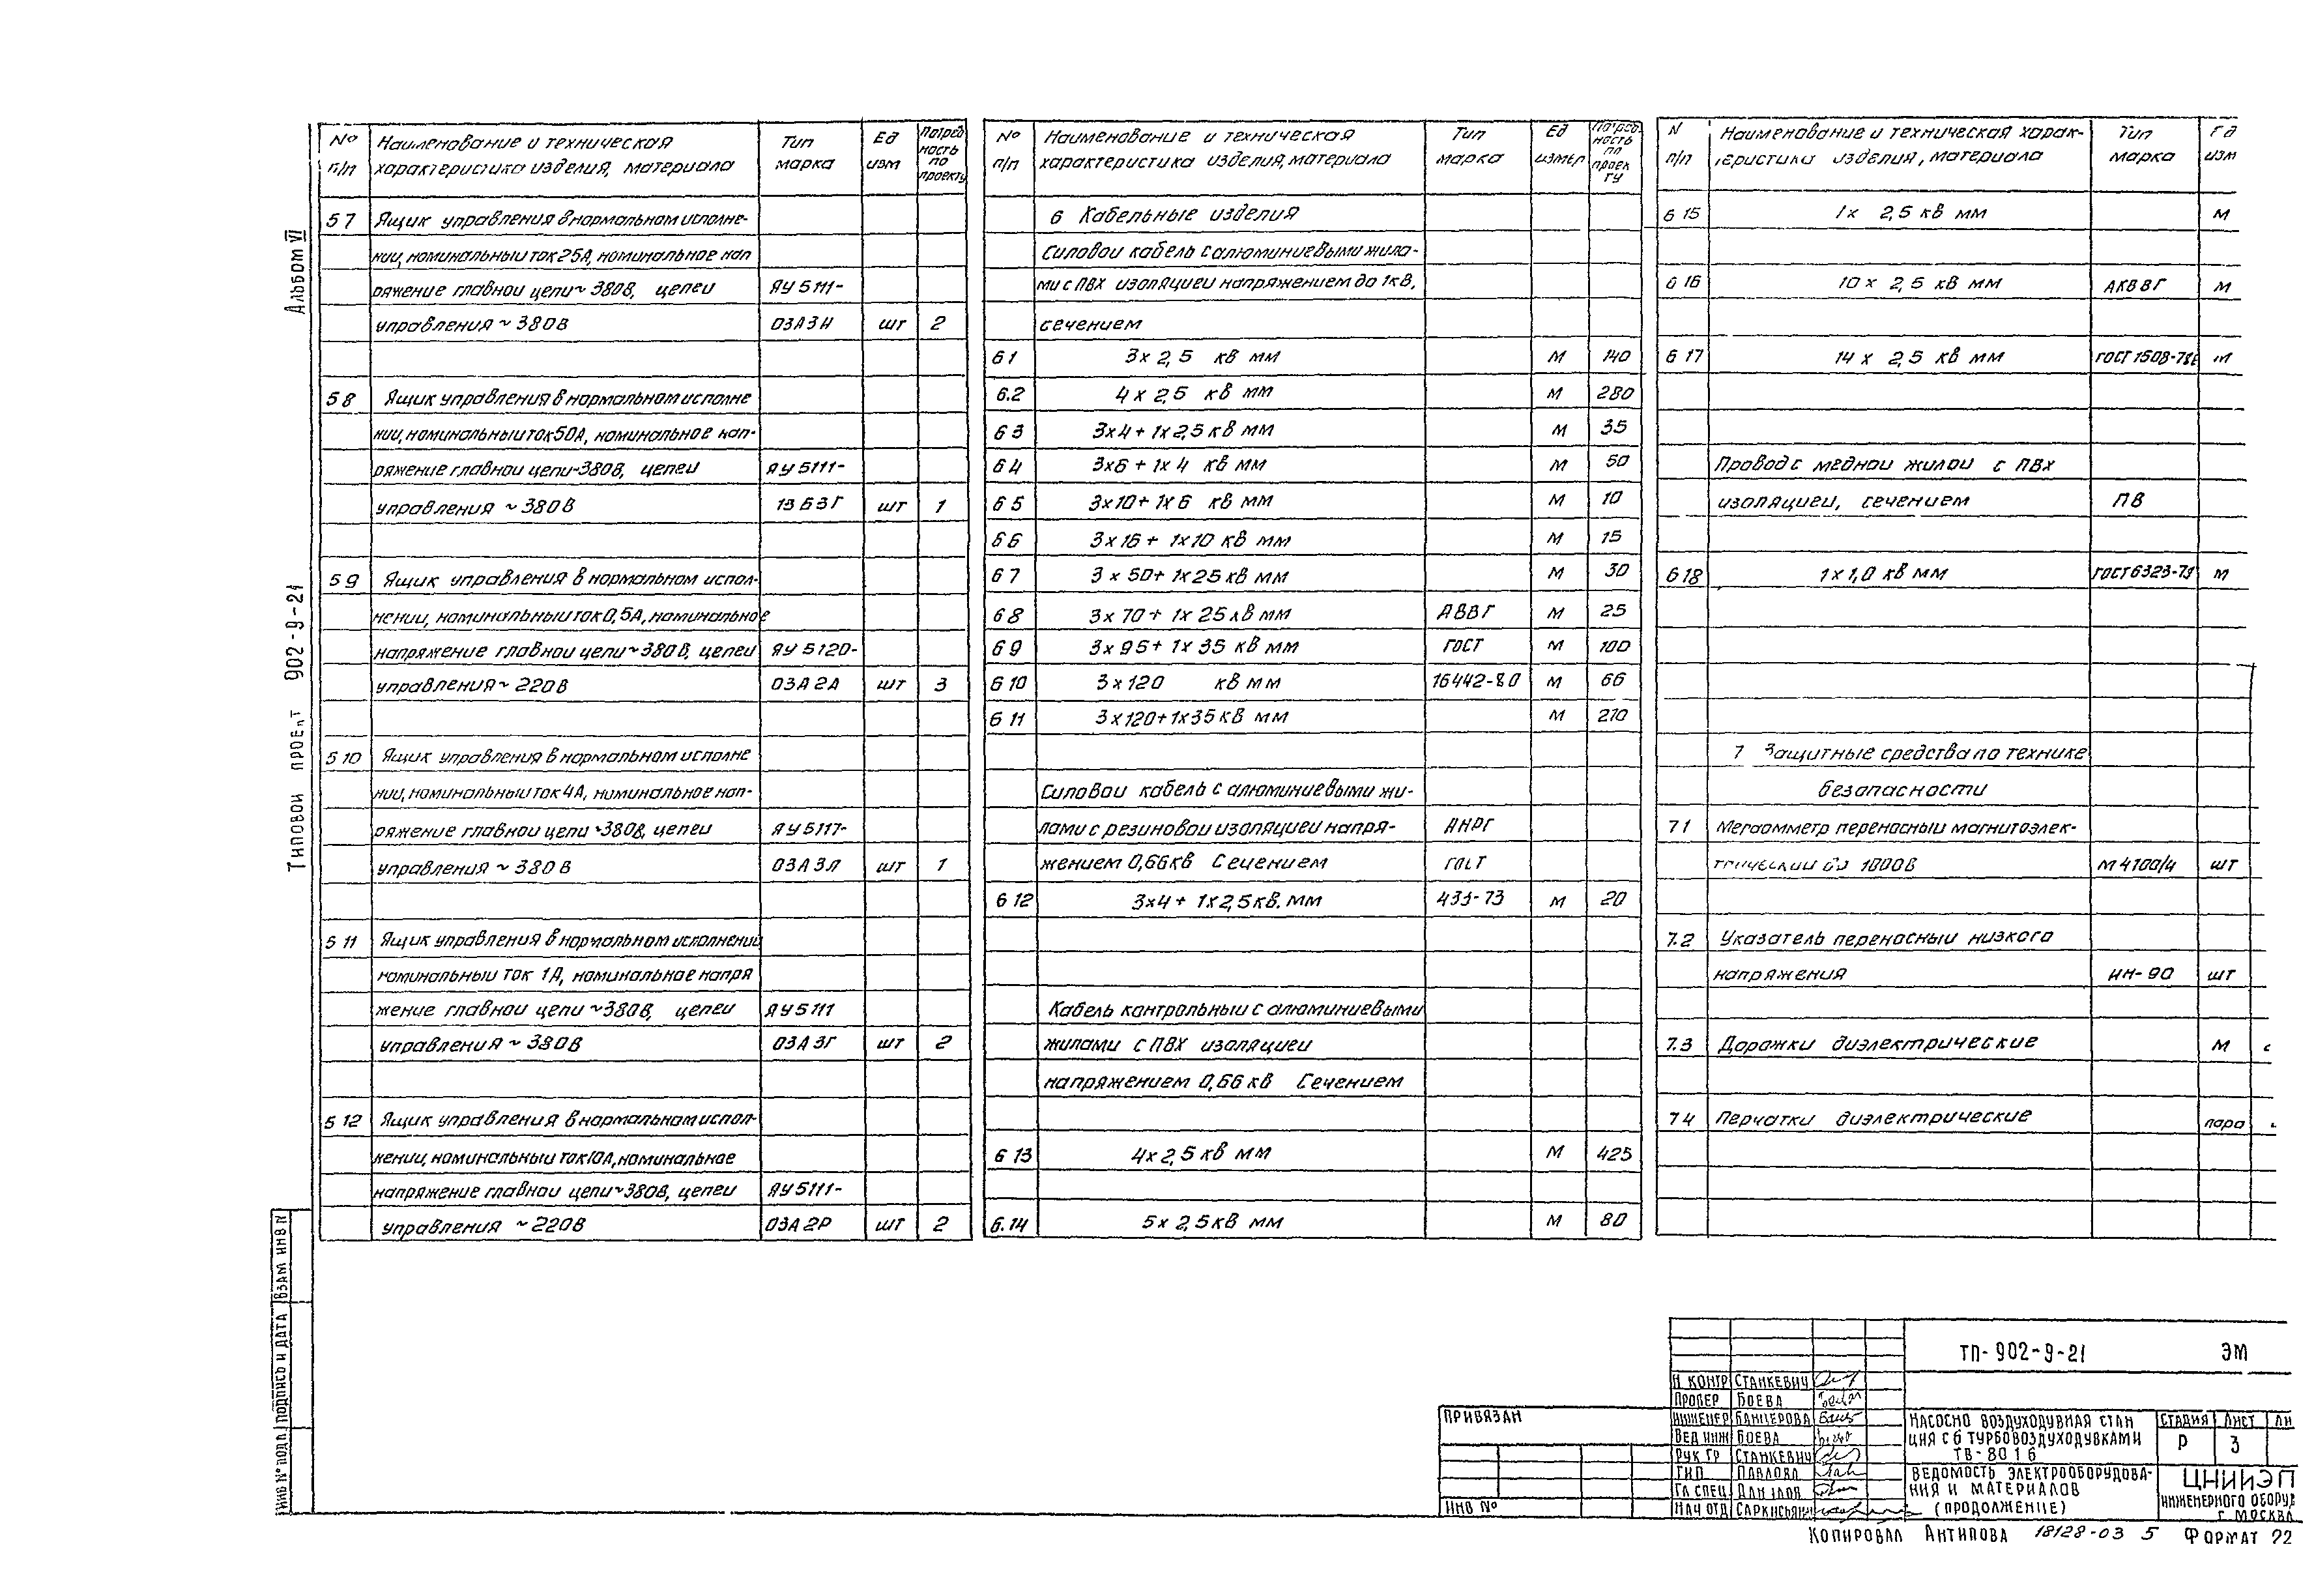 Альбом VI
Типовой проект 902-9-21
Инв № подл
Подпись и дата
Взам инв N
№ п/п Наименование и техническая характеристика изделия, материала Тип марка Ед изм Потребность по проекту
5 7 Ящик управления в нормальном исполне-
нии, номинальный ток 25А, номинальное нап
ряжение главной цепи ~ 380В, цепей ЯУ 5111-
управления ~ 380В 03А3И шт 2
5 8 Ящик управления в нормальном исполне
нии, номинальный ток 50А, номинальное нап-
ряжение главной цепи ~380В, цепей ЯУ 5111-
управления ~ 380В 13Б3Г шт 1
5 9 Ящик управления в нормальном испол-
нении, номинальный ток 0,5А, номинальное
напряжение главной цепи ~ 380В, цепей ЯУ 5120-
управления ~ 220В 03А2А шт 3
5 10 Ящик управления в нормальном исполне
нии, номинальный ток 4А, номинальное нап-
ряжение главной цепи ~380В, цепей ЯУ 5117-
управления ~ 380В 03А3Л шт 1
5 11 Ящик управления в нормальном исполнении
номинальный ток 1А, номинальное напря
жение главной цепи ~380В, цепей ЯУ 5111
управления ~ 380В 03А3Г шт 2
5 12 Ящик управления в нормальном испол-
нении, номинальный ток 10А, номинальное
напряжение главной цепи ~380В, цепей ЯУ 5111-
управления ~220В 03А2Р шт 2
№ п/п Наименование и техническая характеристика изделия, материала Тип марка Ед измер Потребность по проекту
6 Кабельные изделия
Силовой кабель с алюминиевыми жила-
ми с ПВХ изоляцией напряжением до 1кВ,
сечением
6 1 3х2,5 кв мм м 140
6.2 4х2,5 кв мм м 280
6 3 3х4+1х2,5 кв мм м 35
6 4 3х6+1х4 кв мм м 50
6 5 3х10+1х6 кв мм м 10
6 6 3х16+1х10 кв мм м 15
6 7 3х50+1х25 кв мм м 30
6 8 3х70+1х25 кв мм АВВГ м 25
6 9 3х95+1х35 кв мм ГОСТ м 100
6 10 3х120 кв мм 16442-80 м 66
6 11 3х120+1х35 кв мм м 210
Силовой кабель с алюминиевыми жи-
лами с резиновой изоляцией напря- АНРГ
жением 0,66кв Сечением ГОСТ
6 12 3х4+1х2,5 кв. мм 433-73 м 20
Кабель контрольный с алюминиевыми
жилами с ПВХ изоляцией
напряжением 0,66 кв Сечением
6 13 4х2,5 кв мм м 425
6.14 5х2,5 кв мм м 80
N п/п Наименование и техническая харак-
теристика изделия, материала Тип марка Ед изм
6 15 1х 2,5 кв мм м
6 16 10х 2,5 кв мм АКВВГ м
6 17 14х 2,5 кв мм ГОСТ 1508-78Е м
Провод с медной жилой с ПВХ
изоляцией, сечением ПВ
6 18 1х1,0 кв мм ГОСТ 6323-79 м
7 Защитные средства по технике
безопасности
7 1 Мегаомметр переносный магнитоэлек-
трический до 1000В М4100/4 шт
7.2 Указатель переносный низкого
напряжения ИН-90 шт
7.3 Дорожки диэлектрические м
7 4 Перчатки диэлектрические пара
Привязан
Инв №
Н контр Станкевич
Провер Боева
Инженер Банцерова
Вед инж Боева
Рук гр Станкевич
ГИП Павлова
Гл спец Данилов
Нач отд
ТП-902-9-21 ЭМ
Насосно воздуходувная стан
ция с 6 турбовоздуходувками
ТВ-80 1 6
Стадия Лист
Р 3
Ведомость электрооборудова-
ния и материалов
(продолжение)
ЦНИИЭП
инженерного оборуд
г Москва
Копировал Антипова 18128-03 5 Формат 22